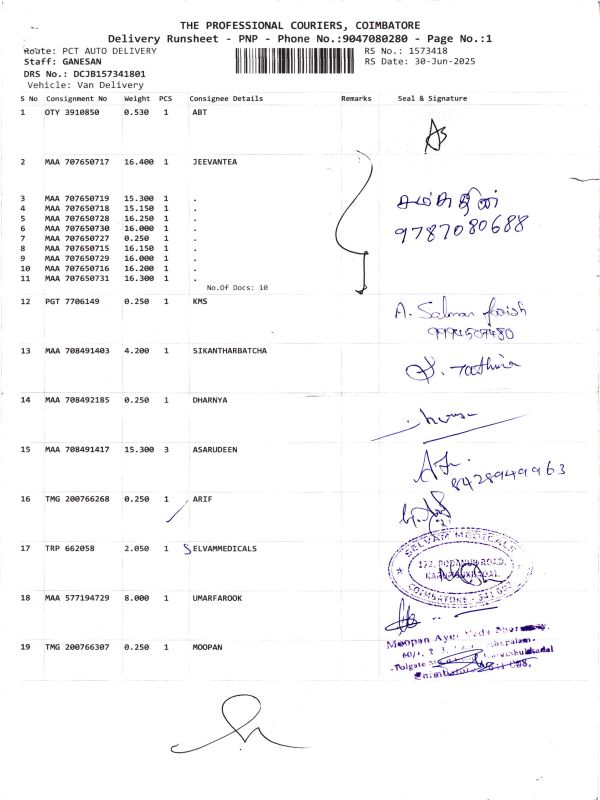 THE PROFESSIONAL COURIERS, COIMBATORE
Delivery Runsheet - PNP - Phone No.:9047080280 - Page No.:1
Route: PCT AUTO DELIVERY RS No.: 1573418
Staff: GANESAN RS Date: 30-Jun-2025
DRS No.: DCJB157341801
Vehicle: Van Delivery
S No Consignment No Weight PCS Consignee Details Remarks Seal & Signature
1 OTY 3910850 0.530 1 ABT
2 MAA 707650717 16.400 1 JEEVANTEA
3 MAA 707650719 15.300 1 .
4 MAA 707650718 15.150 1 .
5 MAA 707650728 16.250 1 .
6 MAA 707650730 16.000 1 .
7 MAA 707650727 0.250 1 .
8 MAA 707650715 16.150 1 .
9 MAA 707650729 16.000 1 .
10 MAA 707650716 16.200 1 .
11 MAA 707650731 16.300 1 .
9787080688
No.Of Docs: 10
12 PGT 7706149 0.250 1 KMS
A. Salman
13 MAA 708491403 4.200 1 SIKANTHARBATCHA
14 MAA 708492185 0.250 1 DHARNYA
15 MAA 708491417 15.300 3 ASARUDEEN
8428949963
16 TMG 200766268 0.250 1 ARIF
17 TRP 662058 2.050 1 SELVAMMEDICALS
SELVAM MEDICALS
172, PODANUR ROAD,
COIMBATORE
18 MAA 577194729 8.000 1 UMARFAROOK
19 TMG 200766307 0.250 1 MOOPAN
Moopan Ayur Veda